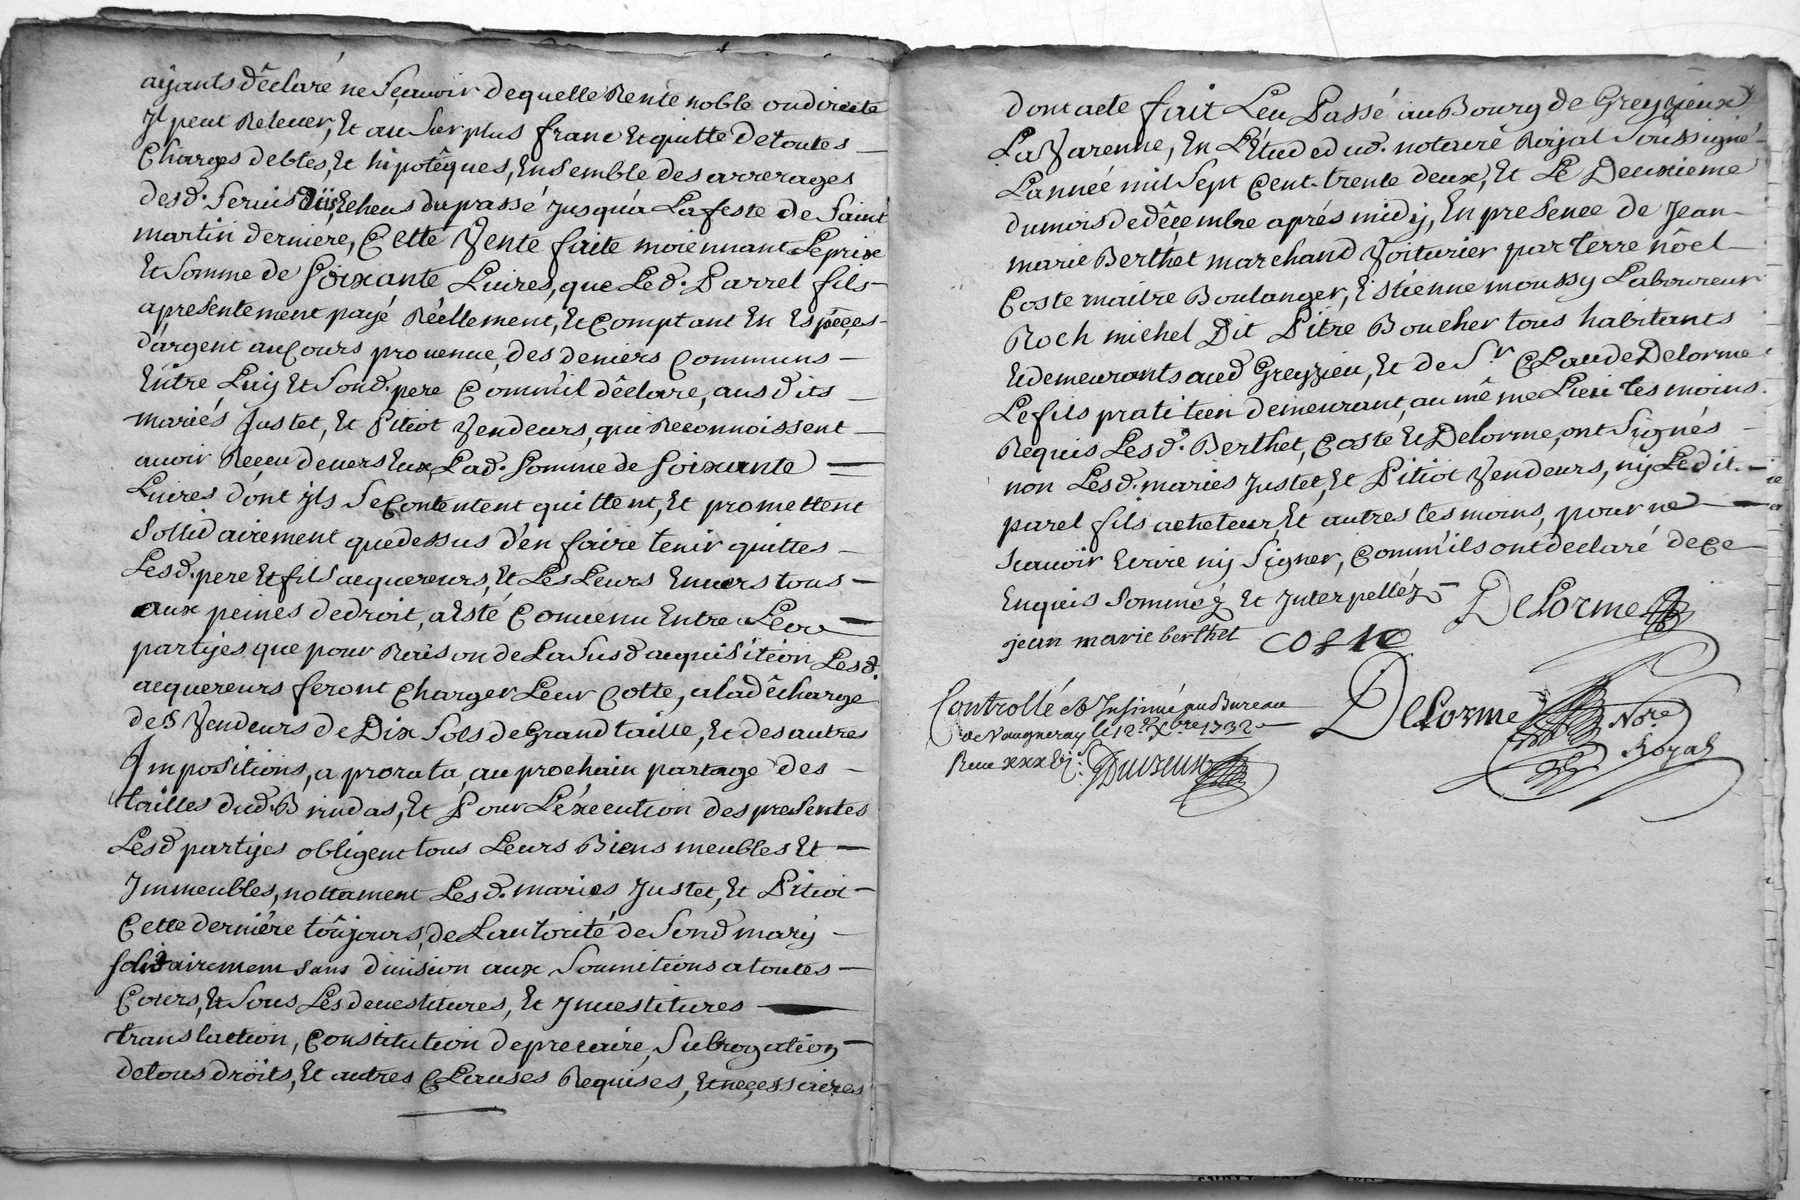 aÿants dêclaré ne Sçauoir dequelle Rente noble oudirecte
Jl peut Releuer, Et au Surplus franc Etquitte detoutes
Charges debtes, Et hipotêques, Ensemble des arrerages
desd. Seruis düs, Echeus dupassé jusqu'a Lafeste de Saint
martin derniére, Cette Vente faite moiennant Leprix
Et Somme de Soixante Liures, que Led. Parrel fils
apresentement payé Réellement, Et Comptant En Espéçes
d'argent auCours prouenue, des deniers Communs
Entre Luy Et Sond. pere Comm'il dêclare, aus dits
mariés Justet, Et Pitiot Vendeurs, qui Reconnoissent
auoir Receu deuers Eux, Lad. Somme de Soixante
Liures dont jls SeContentent quittent, Et promettent
Sollidairement quedessus d'en faire tenir quittes
Lesd. pere Et fils acquereurs, Et Les Leurs Enuers tous
aux peines dedroit, aEsté Conuenu Entre Les
partijes que pour Raison deLaSusd acquisition Lesd.
acquereurs feront Charger Leur Cotte, alad dêcharge
des Vendeurs de Dix Sols deGrand taille, Et desautres
Jmpositions, a prorata, au prochain partage des
tailles dud. Brindas, Et Pour L'éxecution des presentes
Lesd partijes obligent tous Leurs Biens meubles Et
Jmmeubles, nottament Lesd. mariés Justet, Et Pitiot
Cette derniére toûjours, de Lautorité de Sond mary
Solidairement Sans diuision aux Soumitions atoutes
Cours, Et Sous Les deuestitures, Et Jnuestitures
translaction, Constitution deprecaire, Subrogation
detous droits, Et autres Clauses Requises, Etneçessaires
dont acte fait Leu Passé auBourg de Greyzieux
La Varenne, En L'Étude dud. notaire Roÿal Soussigné
L'année mil Sept Cent trente deux, Et Le Deuxieme
dumois dedêcembre aprés midy, En presence de Jean
marie Berthet marchand Voiturier par terre nôel
Coste maitre Boulanger, Estienne moussy Laboureur
Roch michel Dit Pitre Boucher tous habitants
Etdemeurants aud Greyzieu, Et de Sr. Claude Delorme
Lefils pratitien demeurant, au même Lieu tesmoins
Requis Lesd. Berthet, Coste Et Delorme, ont Signés
non Lesd. mariés Justet, Et Pitiot Vendeurs, nÿ Ledit
parel fils acheteur Et autres tesmoins, pour ne
Scauoir Ecrire nÿ Signer, Comm'ils ont declaré dece
Enquis Sommés Et Jnterpelléz Delorme
jean marie berthet coste
Controllé & Jnsinué au Bureau
de Vaugneray le 12e. Xbre 1732
Receu xxx
Delorme Nore.
Royal